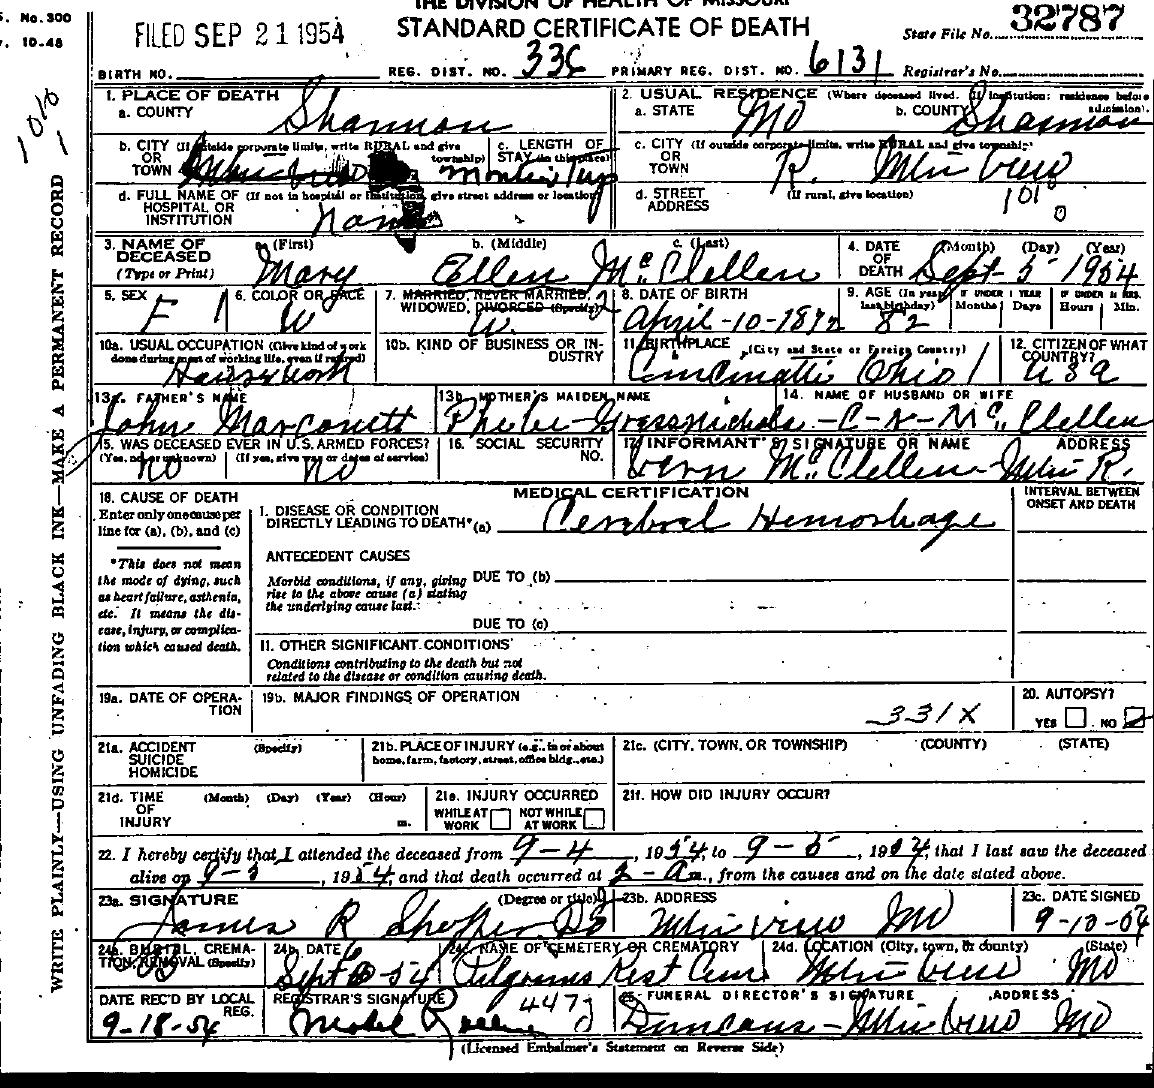 THE DIVISION OF HEALTH OF MISSOURI
S. No. 300
10-48
FILED SEP 21 1954
STANDARD CERTIFICATE OF DEATH
State File No. 32787
BIRTH NO. REG. DIST. NO. 336 PRIMARY REG. DIST. NO. 6131 Registrar's No.
1010
1
WRITE PLAINLY—USING UNFADING BLACK INK—MAKE A PERMANENT RECORD
1. PLACE OF DEATH
a. COUNTY Shannon
2. USUAL RESIDENCE (Where deceased lived. If institution: residence before admission).
a. STATE Mo b. COUNTY Shannon
b. CITY (If outside corporate limits, write RURAL and give township) OR TOWN
c. LENGTH OF STAY (in this place)
c. CITY (If outside corporate limits, write RURAL and give township)
OR TOWN R. Mtn View
d. FULL NAME OF (If not in hospital or institution, give street address or location)
HOSPITAL OR INSTITUTION
d. STREET ADDRESS (If rural, give location)
1010
3. NAME OF DECEASED (Type or Print)
a. (First) b. (Middle) c. (Last)
Mary Ellen McClellen
4. DATE OF DEATH (Month) (Day) (Year)
Sept 5 1954
5. SEX F 1
6. COLOR OR RACE W
7. MARRIED, NEVER MARRIED, WIDOWED, DIVORCED (Specify) W. 2
8. DATE OF BIRTH April-10-1872
9. AGE (In years last birthday) 82
IF UNDER 1 YEAR Months Days
IF UNDER 24 HRS. Hours Min.
10a. USUAL OCCUPATION (Give kind of work done during most of working life, even if retired)
Housework
10b. KIND OF BUSINESS OR INDUSTRY
11. BIRTHPLACE (City and State or Foreign Country)
Cincinatti Ohio 1
12. CITIZEN OF WHAT COUNTRY?
USA
13a. FATHER'S NAME
John
13b. MOTHER'S MAIDEN NAME
Phebe
14. NAME OF HUSBAND OR WIFE
C-N-McClellen
15. WAS DECEASED EVER IN U.S. ARMED FORCES?
(Yes, no, or unknown) (If yes, give war or dates of service)
no no
16. SOCIAL SECURITY NO.
17. INFORMANT'S SIGNATURE OR NAME ADDRESS
Vern McClellen
18. CAUSE OF DEATH
Enter only one cause per line for (a), (b), and (c)
*This does not mean the mode of dying, such as heart failure, asthenia, etc. It means the disease, injury, or complication which caused death.
MEDICAL CERTIFICATION
INTERVAL BETWEEN ONSET AND DEATH
I. DISEASE OR CONDITION
DIRECTLY LEADING TO DEATH* (a) Cerebral Hemorhage
ANTECEDENT CAUSES
Morbid conditions, if any, giving rise to the above cause (a) stating the underlying cause last.
DUE TO (b)
DUE TO (c)
II. OTHER SIGNIFICANT CONDITIONS
Conditions contributing to the death but not related to the disease or condition causing death.
19a. DATE OF OPERATION
19b. MAJOR FINDINGS OF OPERATION
331X
20. AUTOPSY?
YES NO
21a. ACCIDENT SUICIDE HOMICIDE (Specify)
21b. PLACE OF INJURY (e.g., in or about home, farm, factory, street, office bldg., etc.)
21c. (CITY, TOWN, OR TOWNSHIP) (COUNTY) (STATE)
21d. TIME OF INJURY (Month) (Day) (Year) (Hour) m.
21e. INJURY OCCURRED
WHILE AT WORK NOT WHILE AT WORK
21f. HOW DID INJURY OCCUR?
22. I hereby certify that I attended the deceased from 9-4, 1954, to 9-5, 1954, that I last saw the deceased
alive on 9-5, 1954, and that death occurred at 2-am., from the causes and on the date stated above.
23a. SIGNATURE (Degree or title)
James R DO
23b. ADDRESS
Mtn View Mo
23c. DATE SIGNED
9-10-54
24a. BURIAL, CREMATION, REMOVAL (Specify)
24b. DATE
Sept 6 54
24c. NAME OF CEMETERY OR CREMATORY
Pilgrims Rest Cem
24d. LOCATION (City, town, or county) (State)
Mtn View Mo
DATE REC'D BY LOCAL REG.
9-18-54
REGISTRAR'S SIGNATURE
Mabel 447
25. FUNERAL DIRECTOR'S SIGNATURE ADDRESS
Duncans-Mtn View Mo
(Licensed Embalmer's Statement on Reverse Side)